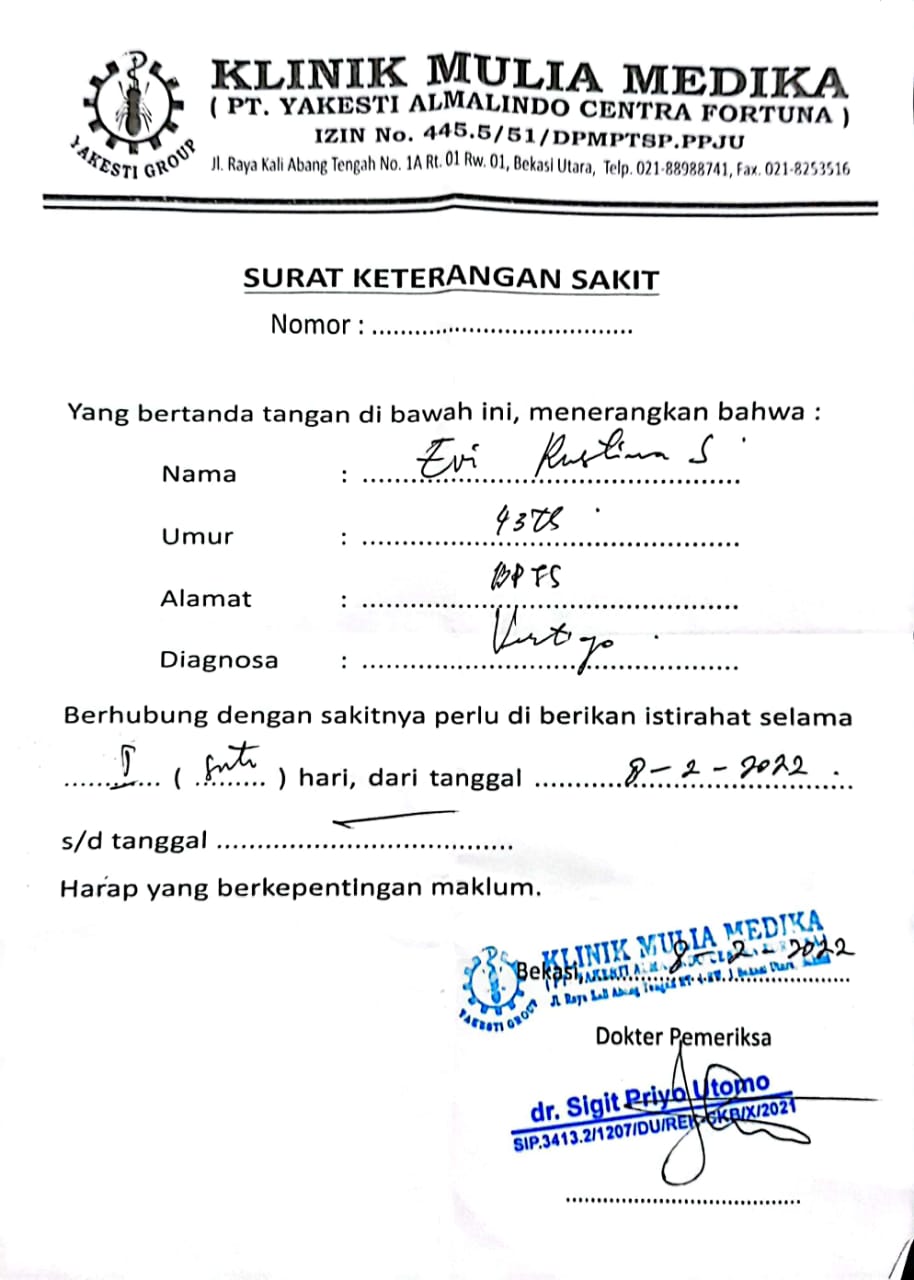 KLINIK MULIA MEDIKA
( PT. YAKESTI ALMALINDO CENTRA FORTUNA )
IZIN No. 445.5/51/DPMPTSP.PPJU
Jl. Raya Kali Abang Tengah No. 1A Rt. 01 Rw. 01, Bekasi Utara, Telp. 021-88988741, Fax. 021-8253516
YAKESTI GROUP
SURAT KETERANGAN SAKIT
Nomor : ....................................
Yang bertanda tangan di bawah ini, menerangkan bahwa :
Nama : Evi Rustina S
Umur : 43
Alamat :
Diagnosa : Vertigo
Berhubung dengan sakitnya perlu di berikan istirahat selama
I ( ) hari, dari tanggal 8-2-2022
s/d tanggal ....................................
Harap yang berkepentingan maklum.
KLINIK MULIA MEDIKA
YAKESTI GROUP
Bekasi, 8-2-2022
Dokter Pemeriksa
dr. Sigit Priyo Utomo
SIP.3413.2/1207/DU/REK-SKB/X/2021